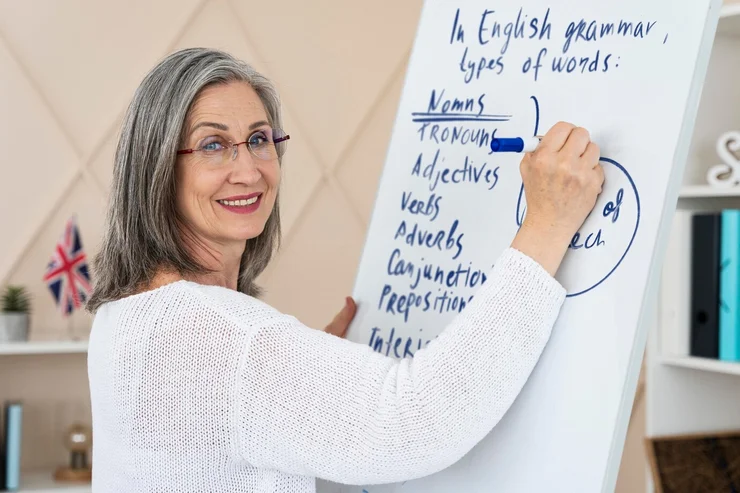 In English grammar,
types of words:
Nomns
PRONOUNS
Adjectives
Verbs
Adverbs
Canjunction
Prepositions
of